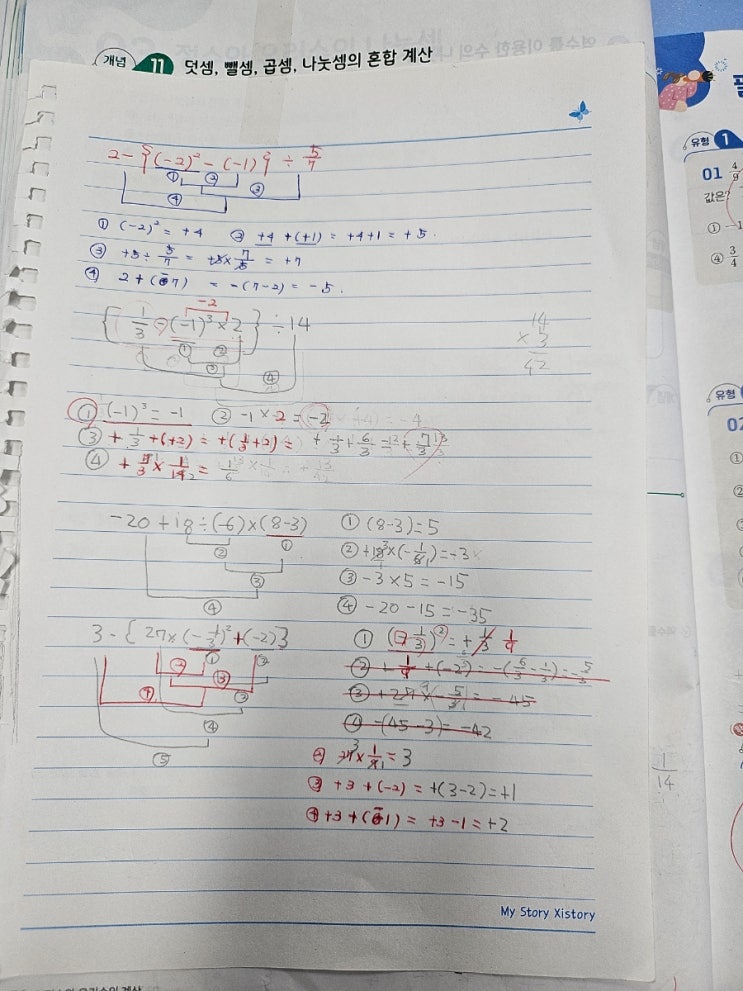 개념 11 덧셈, 뺄셈, 곱셈, 나눗셈의 혼합 계산
2 - {(-2)² - (-1)} ÷ 5/7
① ② ③ ④
① (-2)² = +4 ② +4 + (+1) = +4+1 = +5.
③ +5 ÷ 5/7 = +5 × 7/5 = +7
④ 2 + (-7) = -(7-2) = -5.
-2
{ 1/3 - (-1)³ × 2 } ÷ 14
① ② ③ ④
14
× 3
42
① (-1)³ = -1 ② -1 × 2 = (-2)
③ + 1/3 + (+2) = +(1/3 + 2) = + 1/3 + 6/3 = + 7/3
④ + 7/3 × 1/14 = 1/6
-20 + 18 ÷ (-6) × (8-3) ① (8-3) = 5
② +18 × (-1/6) = -3
③ -3 × 5 = -15
④ -20 - 15 = -35
3 - { 27 × (-1/3)² + (-2) } ① (-1/3)² = + 1/3 1/9
② + 1/9 + (-2) = -(6/3 - 1/3) = -5/3
③ + 27 × (5/3) = -45
④ -(45-3) = -42
② 27 × 1/9 = 3
③ +3 + (-2) = +(3-2) = +1
④ +3 + (-1) = +3 - 1 = +2
My Story Xistory
유형 1
01 4/9
값은?
① -1
④ 3/4
유형
02
①
②
1/14